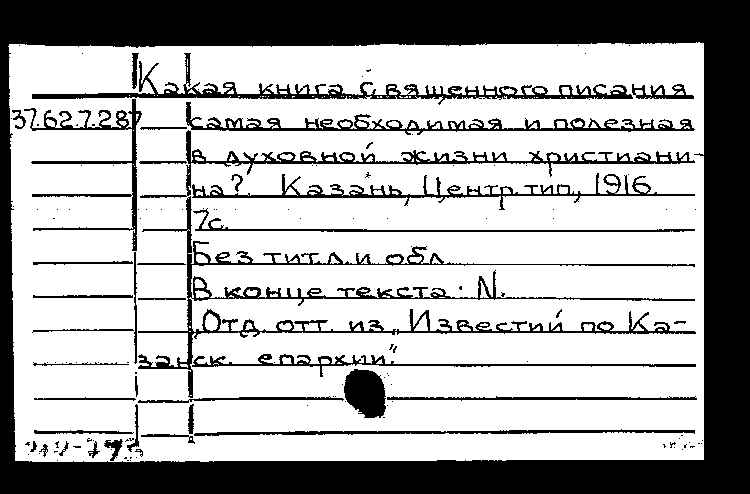 Какая книга священного писания
37.62.7.287 самая необходимая и полезная
в духовной жизни христиани-
на? Казань, Центр. тип., 1916.
7с.
Без тит.л. и обл.
В конце текста: N.
„Отд. отт. из „Известий по Ка-
занск. епархии."